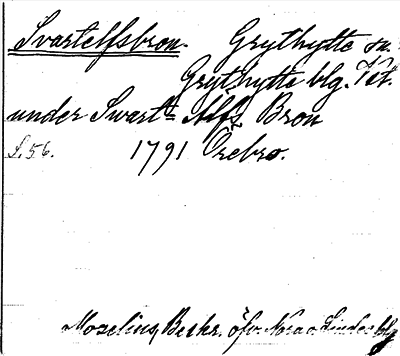 Svartelfsbron. Grythytte sn.
Grythytte blg. Vät.
under Swart Alfs Bron
S. 56. 1791 Örebro.
Mozelius, Beskr. öfv. Nora o Linde blg